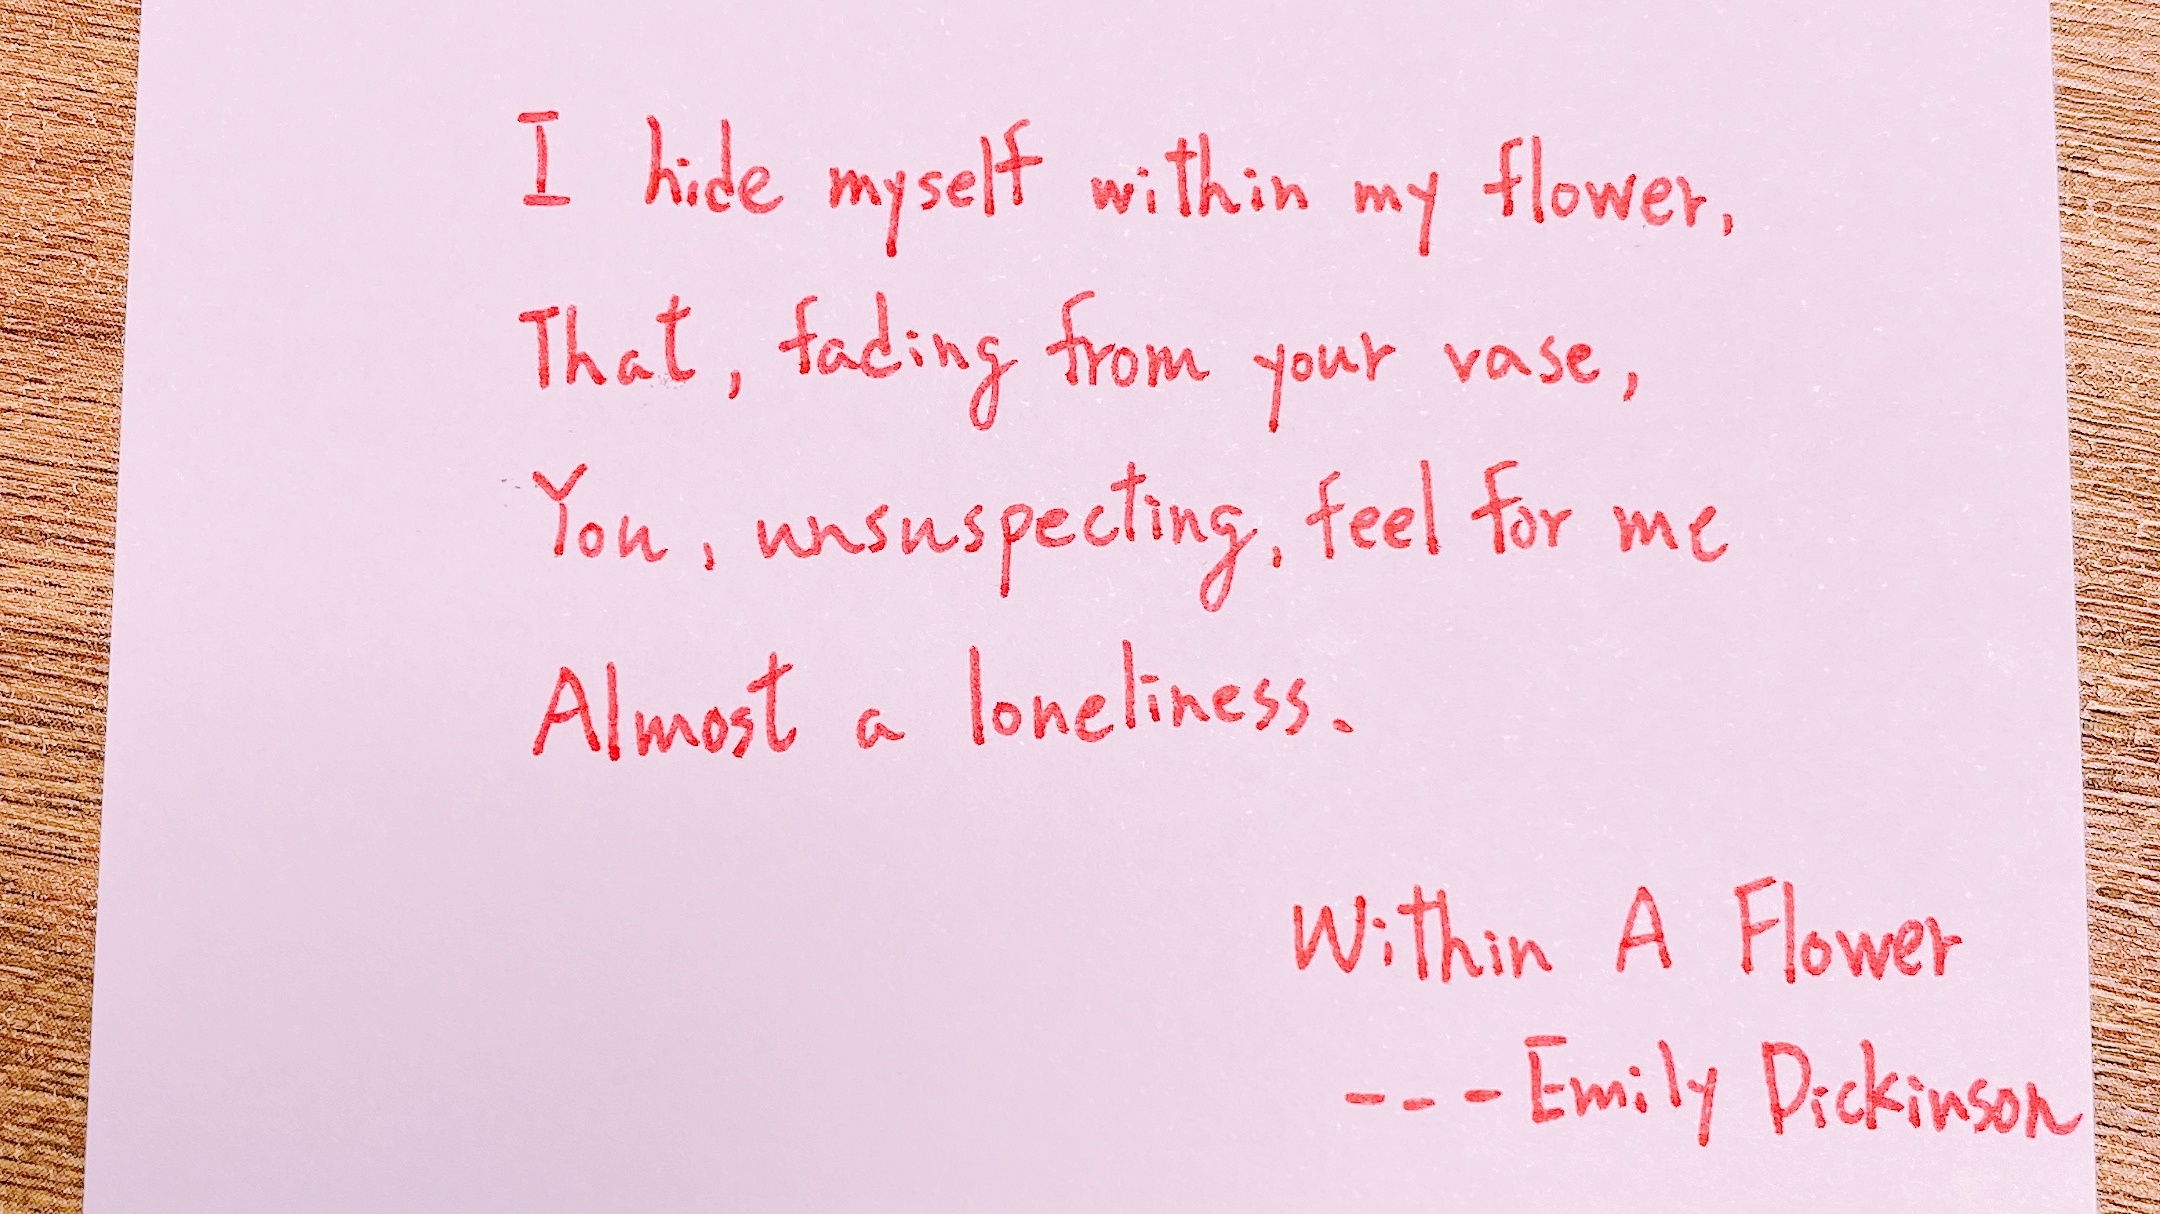 I hide myself within my flower,
That, fading from your vase,
You, unsuspecting, feel for me
Almost a loneliness.
Within A Flower
---Emily Dickinson